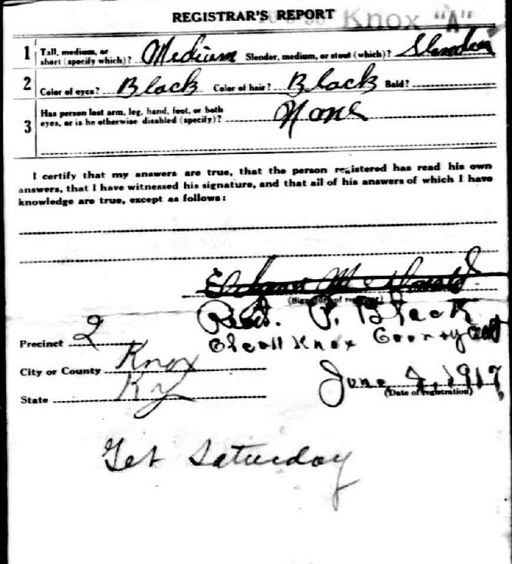 REGISTRAR'S REPORT Knox "A"
1 Tall, medium, or short (specify which)? Medium Slender, medium, or stout (which)? Slender
2 Color of eyes? Black Color of hair? Black Bald?
3 Has person lost arm, leg, hand, foot, or both eyes, or is he otherwise disabled (specify)? None
I certify that my answers are true, that the person registered has read his own
answers, that I have witnessed his signature, and that all of his answers of which I have
knowledge are true, except as follows:
(Signature of registrar)
Robt. P. Black
Clerk Knox County Court
Precinct 2
City or County Knox
State Ky
June 7, 1917
(Date of registration)
Get Saturday